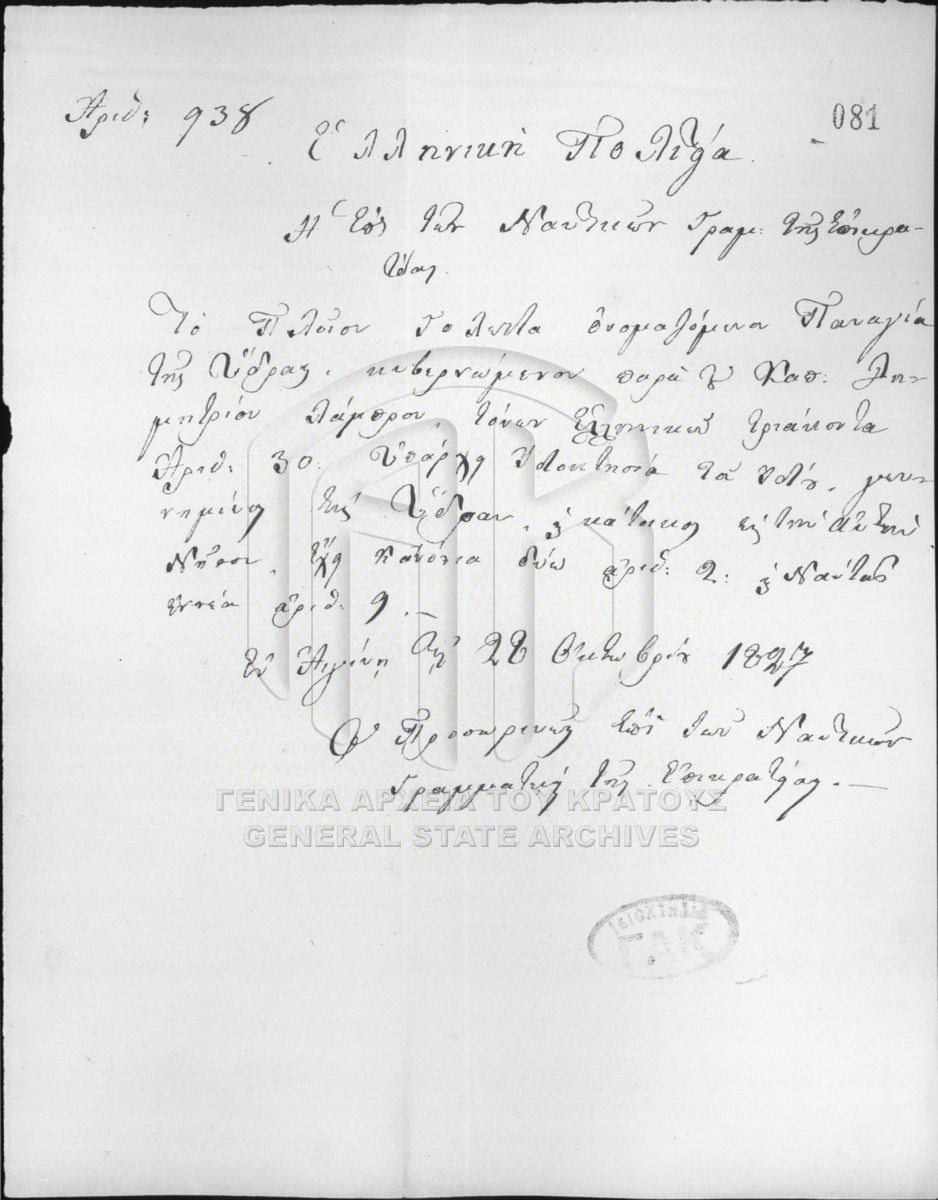 Ἀριθ: 938
081
Ἑλληνικὴ Πολιτεία.
Ἡ ἐπὶ τῶν Ναυτικῶν Γραμ: τῆς Ἐπικρα-
τείας.
Τὸ Πλοῖον Γολέττα ὀνομαζόμενον Παναγία
τῆς Ὕδρας, κυβερνώμενον παρὰ τοῦ Καπ: Δη-
μητρίου Λάμπρου, τόνων Ἑλληνικῶν τριάκοντα
Ἀριθ: 30: Ὑπάρχει ἰδιοκτησία τοῦ ἰδίου, γεν-
νημένος εἰς Ὕδραν, καὶ κάτοικος εἰς τὴν αὐτὴν
Νῆσον, ἔχει κανόνια δύω ἀριθ: 2: καὶ Ναύτας
ἐννέα ἀριθ: 9.—
Ἐν Αἰγίνῃ τῇ 28 Ὀκτωβρίου 1827
Ὁ Προσωρινὸς ἐπὶ τῶν Ναυτικῶν
Γραμματεὺς τῆς Ἐπικρατείας.—
ΓΕΝΙΚΑ ΑΡΧΕΙΑ ΤΟΥ ΚΡΑΤΟΥΣ
GENERAL STATE ARCHIVES
ΓΑΚ